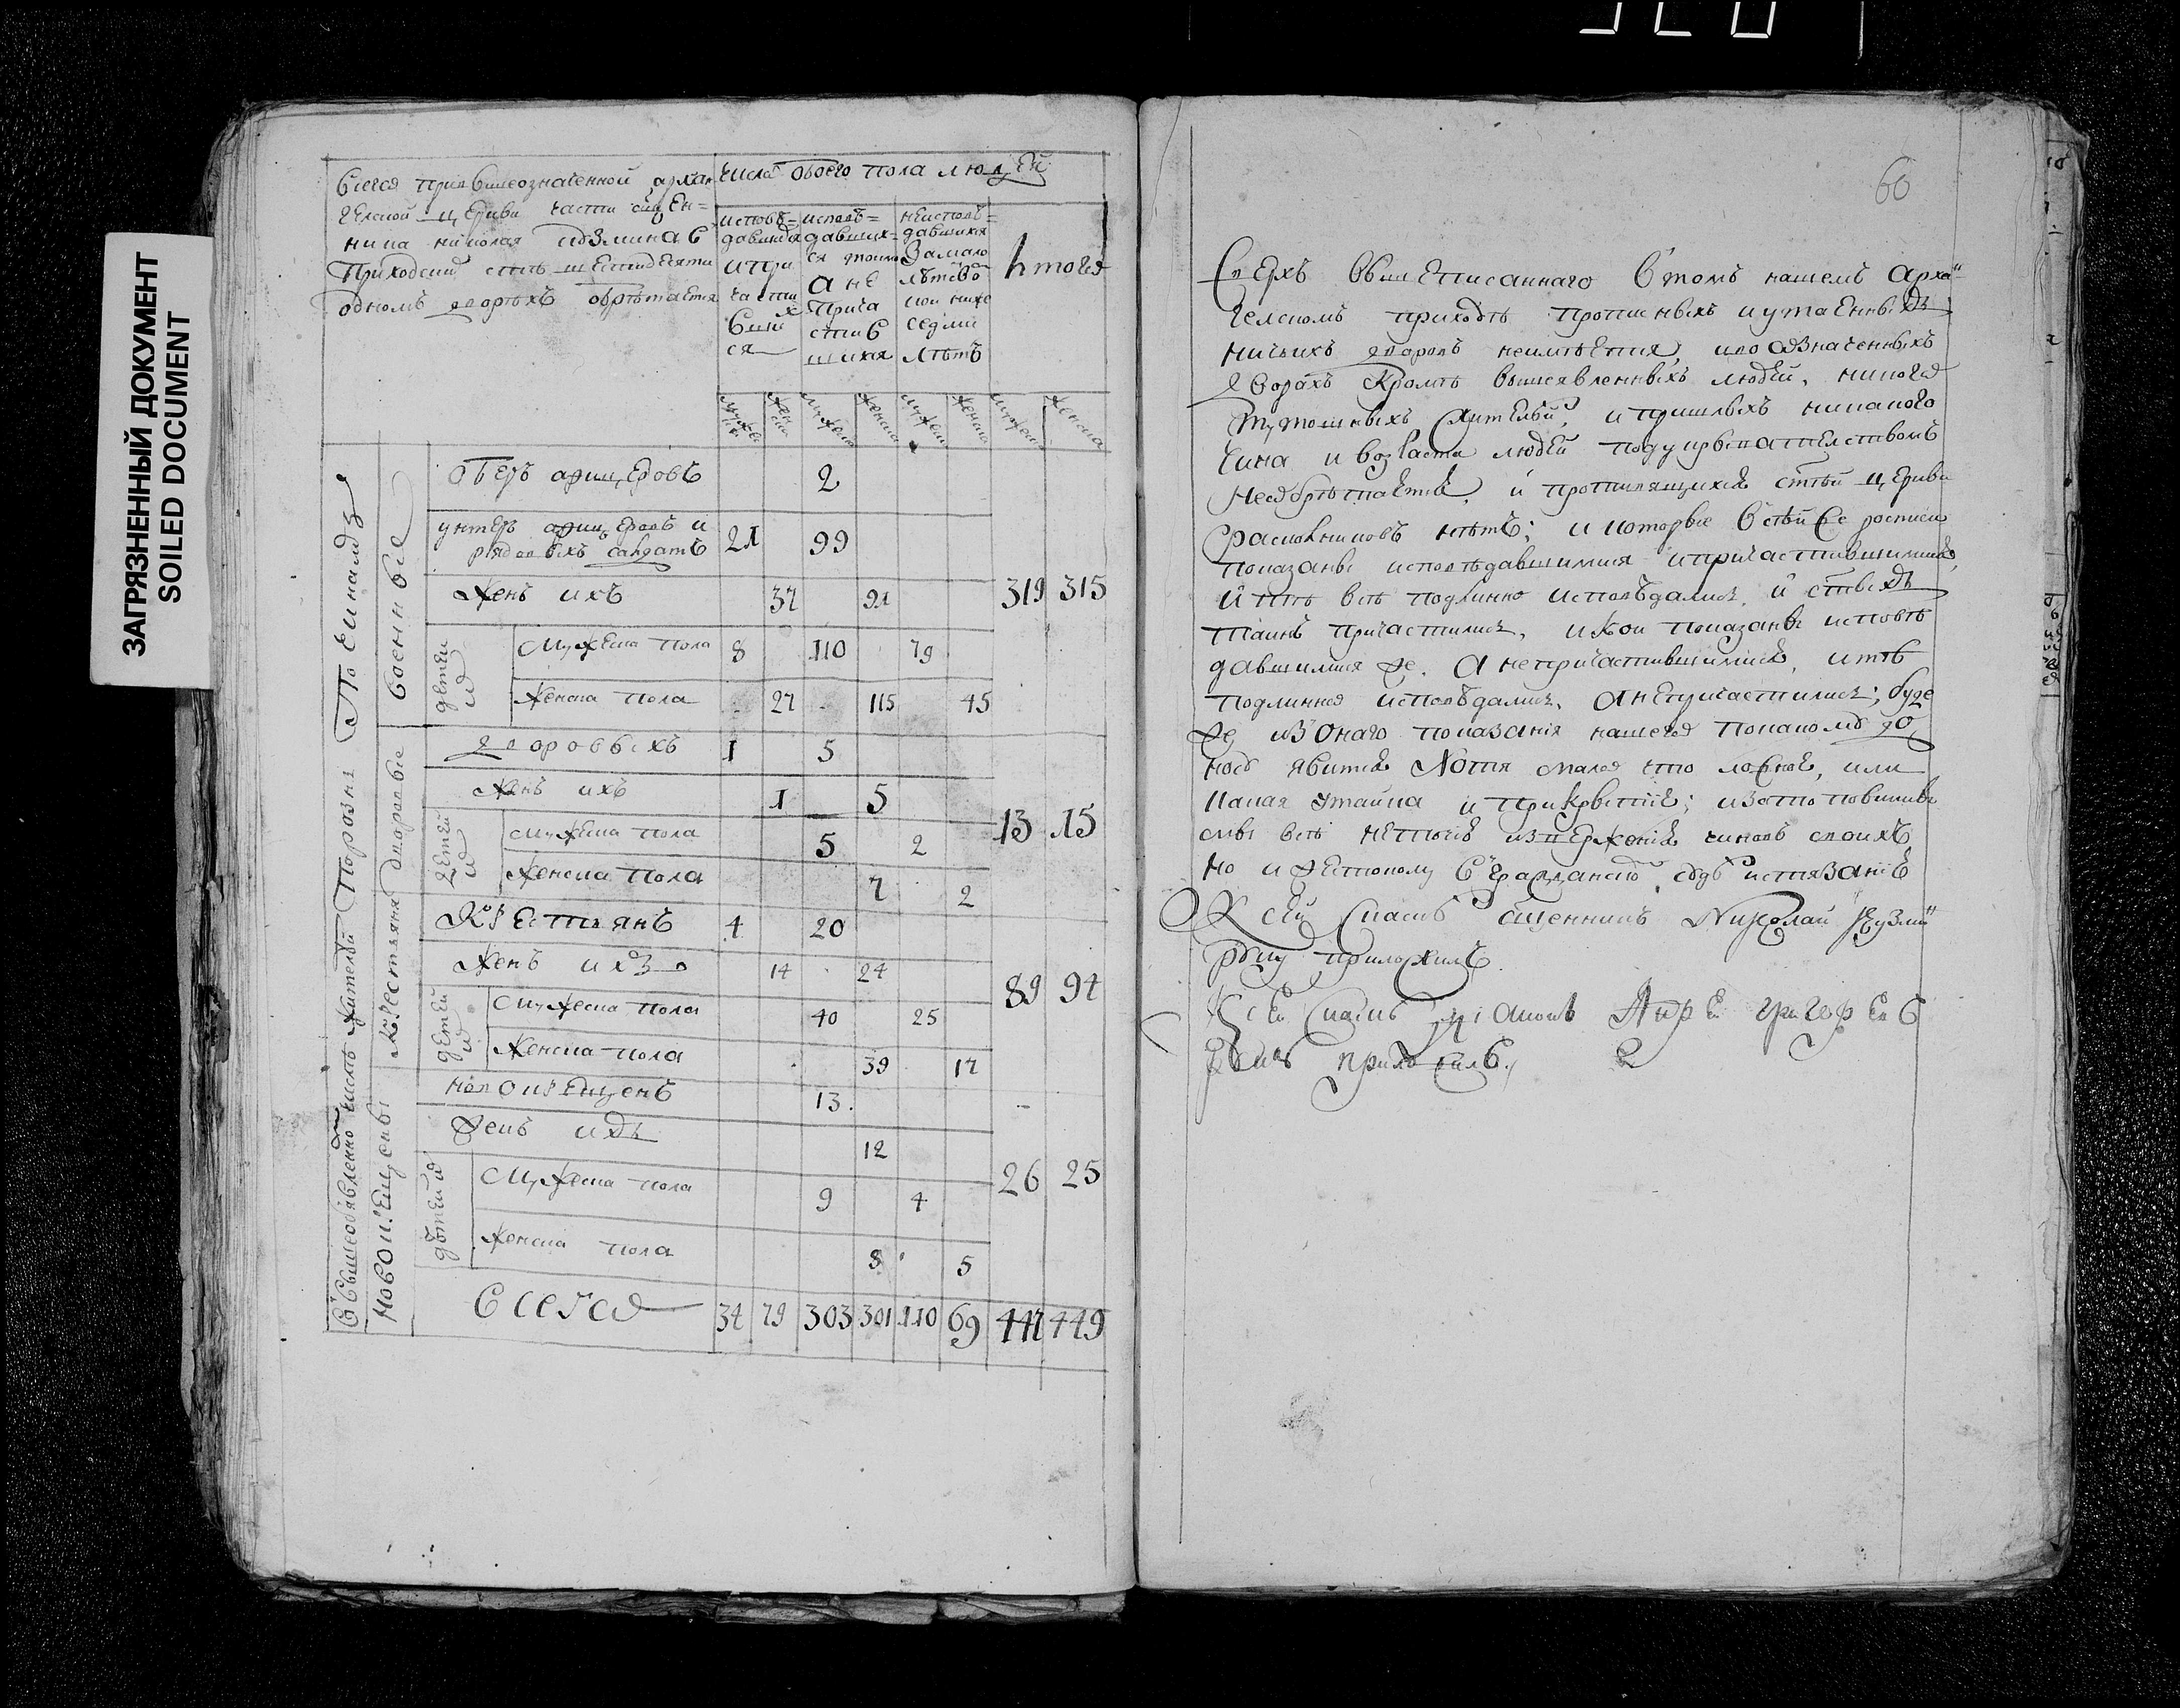 ЗАГРЯЗНЕННЫЙ ДОКУМЕНТ
SOILED DOCUMENT
всего при вышеозначенной архан
гелской церкви части священ=
ника николая козмина в
приходских сто шестидесяти
одномъ дворѣхъ обрѣтается
числа обоего пола людей
исповѣ=
давшихся
и при
частив
шихся
исповѣ=
давших=
ся токмо
а не
прича
стив
шихся
неисповѣ=
давшихся
за мало
лѣтство
кои ниже
седми
лѣтъ
итого
мужеска женска мужеска женска мужеска женска мужеска женска
военныя
оберъ афицеровъ 2
унтеръ афицеровъ и
рядовыхъ салдатъ 21 99
женъ ихъ 37 91 319 315
детей их
мужеска пола 8 110 79
женска пола 27 115 45
дворовые
дворовыхъ 1 5
женъ ихъ 1 5
13 15
детей их
мужеска пола 5 2
женска пола 7 2
крестьяня
крестьянъ 4 20
женъ ихъ 14 24
89 94
детей их
мужеска пола 40 25
женска пола 39 17
новокрещены
новокрещенъ 13
женъ ихъ 12
26 25
дѣтей их
мужеска пола 9 4
женска пола 8 5
всего 34 79 303 301 110 69 447 449
60
Сверхъ вышеписаннаго в томъ нашемъ арха
гелскомъ приходѣ прописныхъ и утаенныхъ
ничьихъ дворовъ неимѣется, и во означенныхъ
дворахъ кромѣ вышеявленныхъ людей, никого
тутошныхъ жителей, и пришлыхъ никакого
чина и возраста людей под укрывателствомъ
необрѣтается, и противящихся стей церкви
расколниковъ нѣтъ; и которые в сей росписи
показаны исповѣдавшимися и причастившимися,
и тѣ всѣ подлинно исповѣдались, и стыхъ
таинъ причастились, и кои показаны исповѣ
давшимися же, а непричастившимися, и тѣ
подлинно исповѣдались, а непричастились; буде
же из онаго показания нашего по какому до
носу явится хотя малое что ложное, или
какая утайка и прикрытие; и за то повинны
мы всѣ не токмо извержения чиновъ своихъ
но и жестокому в гражданскомъ суде истязанию
К сей скаске священникъ Николай Кузмин
руку приложилъ.
К сей скаскѣ диаконъ Андрей григорьев
руку приложилъ.